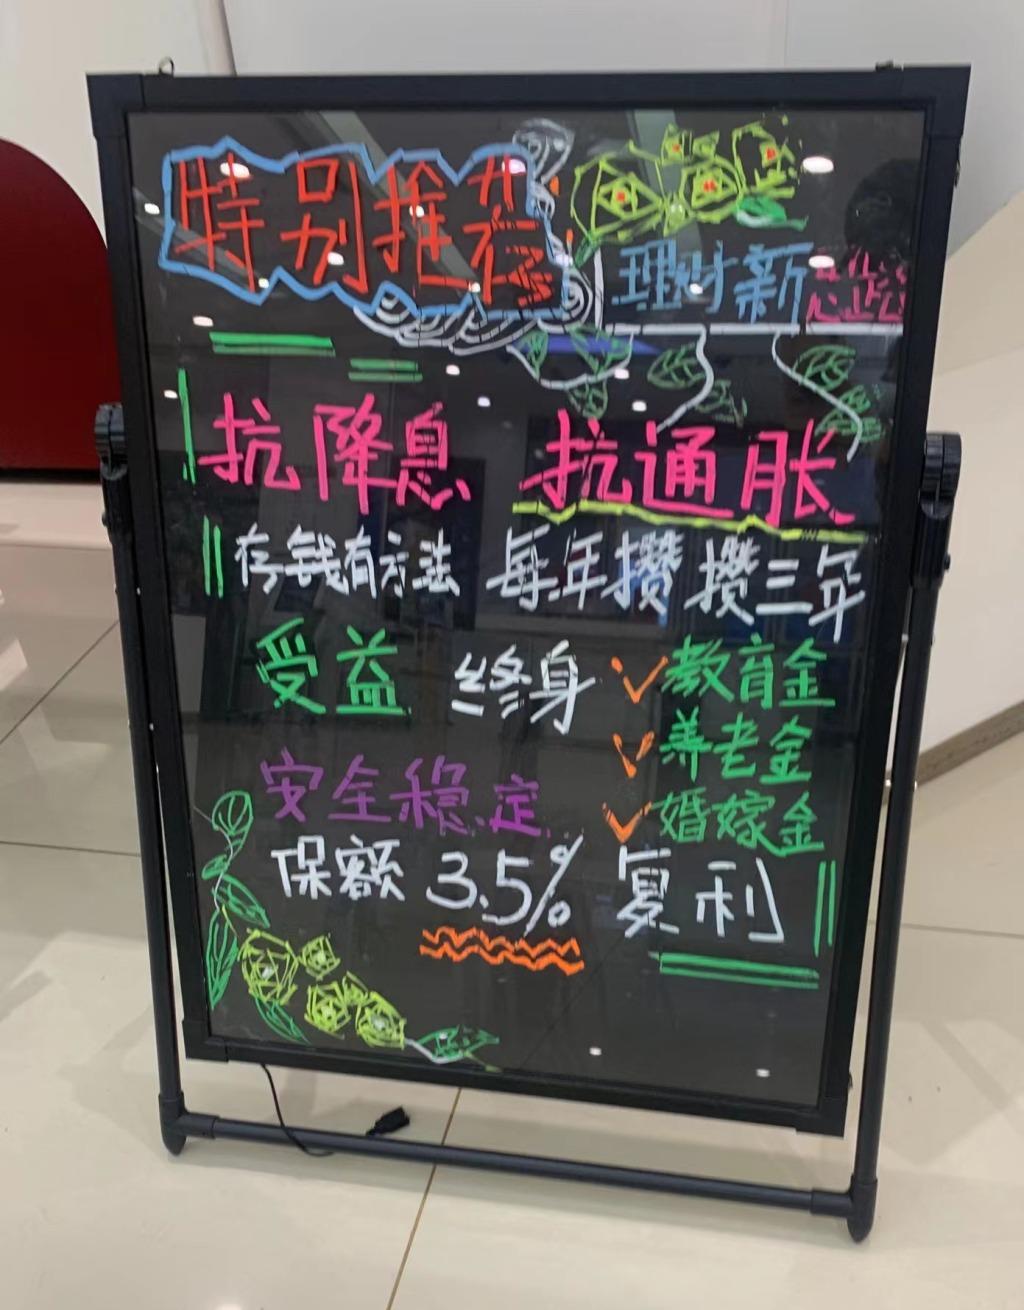 特别推荐
理财新
抗降息 抗通胀
存钱有方法 每年攒 攒三年
受益 终身 教育金
养老金
安全稳定 婚嫁金
保额 3.5% 复利